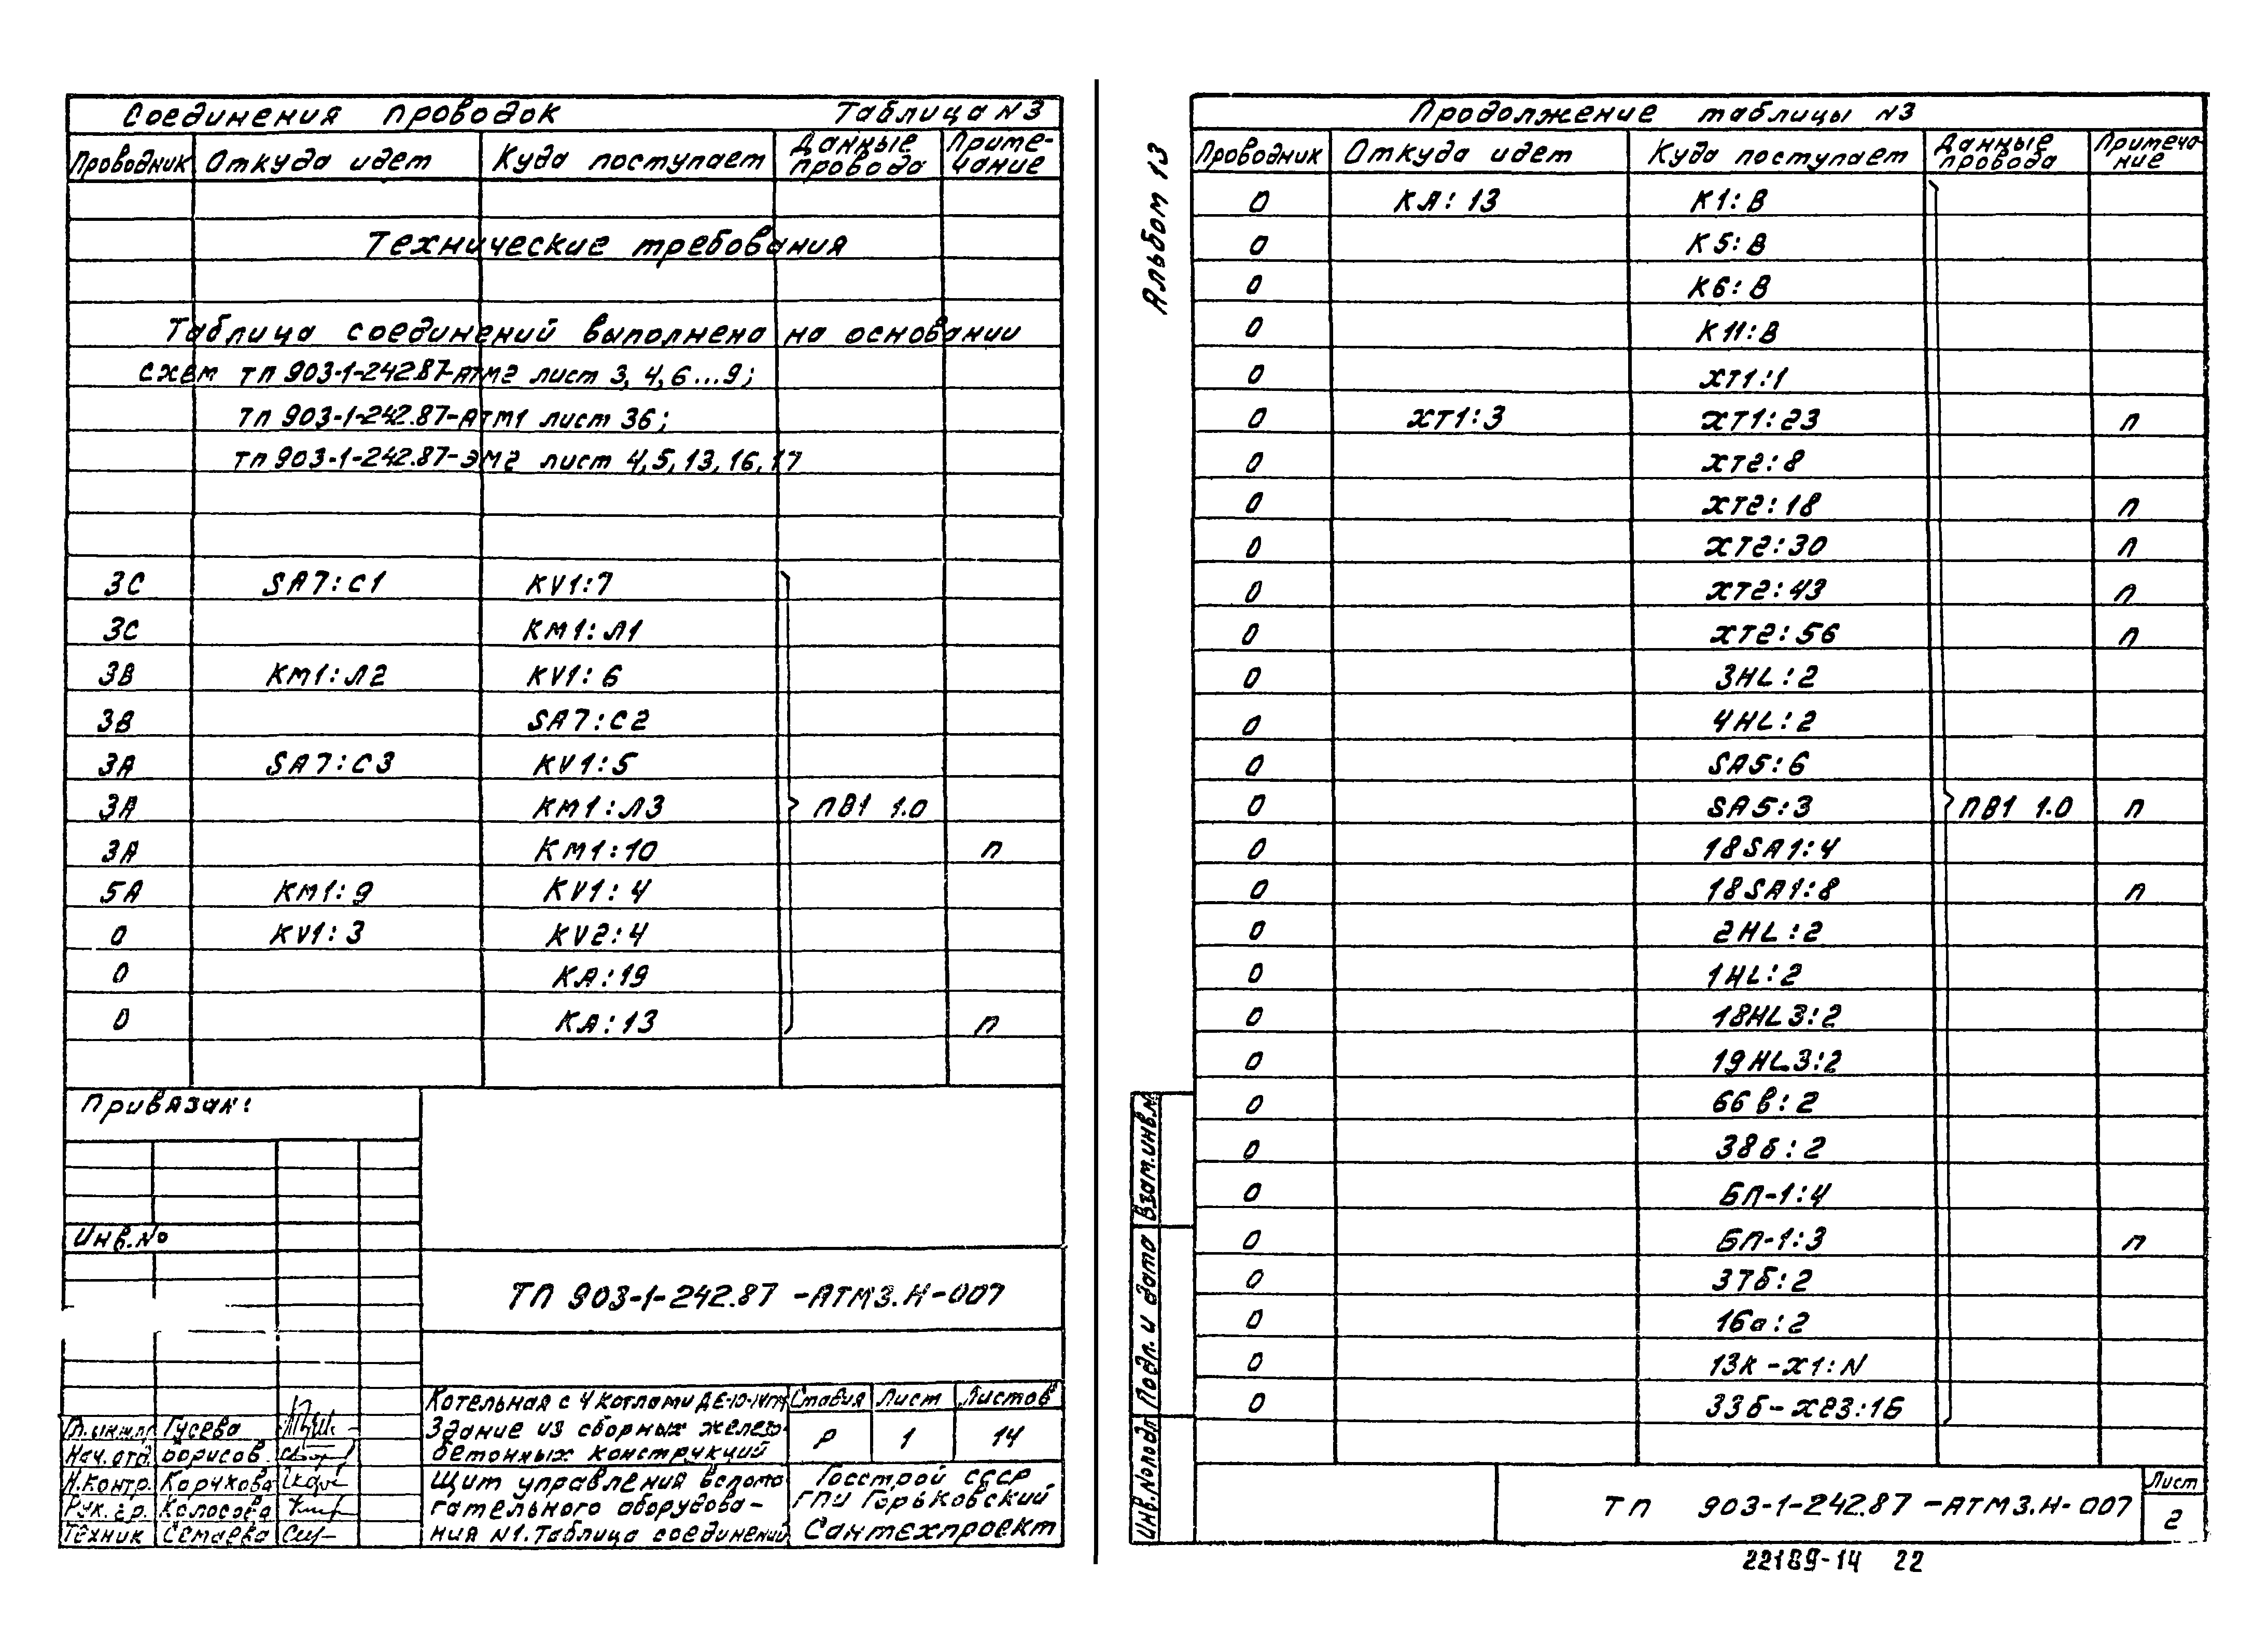 Соединения проводок Таблица N3
Проводник Откуда идет Куда поступает Данные провода Приме-чание
Технические требования
Таблица соединений выполнена на основании
схем ТП 903-1-242.87-АТМ2 лист 3, 4, 6...9;
ТП 903-1-242.87-АТМ1 лист 36;
ТП 903-1-242.87-ЭМ2 лист 4, 5, 13, 16, 17
3С SA7:С1 KV1:7
3С КМ1:Л1
3В КМ1:Л2 KV1:6
3В SA7:С2
3А SA7:С3 KV1:5
3А КМ1:Л3 ПВ1 1.0
3А КМ1:10 п
5А КМ1:9 KV1:4
0 KV1:3 KV2:4
0 КА:19
0 КА:13 п
Привязан:
Инв.№
ТП 903-1-242.87 -АТМ3.Н-007
Котельная с 4 котлами ДЕ-10-14ГМ
Здание из сборных железо-
бетонных конструкций
Стадия Лист Листов
Р 1 14
Гл.инж.пр Гусева
Нач.отд. Борисов
Н.контр. Корчкова
Рук.гр. Колосова
Техник Семаева
Щит управления вспомо
гательного оборудова-
ния N1. Таблица соединений
Госстрой СССР
ГПИ Горьковский
Сантехпроект
Альбом 13
Продолжение таблицы N3
Проводник Откуда идет Куда поступает Данные провода Примеча-ние
0 КА:13 К1:В
0 К5:В
0 К6:В
0 К11:В
0 ХТ1:1
0 ХТ1:3 ХТ1:23 п
0 ХТ2:8
0 ХТ2:18 п
0 ХТ2:30 п
0 ХТ2:43 п
0 ХТ2:56 п
0 3HL:2
0 4HL:2
0 SA5:6
0 SA5:3 ПВ1 1.0 п
0 18SA1:4
0 18SA1:8 п
0 2HL:2
0 1HL:2
0 18HL3:2
0 19HL3:2
0 66в:2
0 38б:2
0 БП-1:4
0 БП-1:3 п
0 37б:2
0 16а:2
0 13К-Х1:N
0 33б-Х23:1Б
Взам.инв.№
Подп. и дата
Инв.№подл
ТП 903-1-242.87 -АТМ3.Н-007
Лист
2
22189-14 22